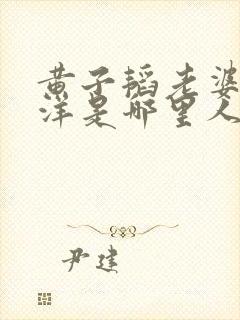 黄子韬老婆
洋是哪里人
尹建